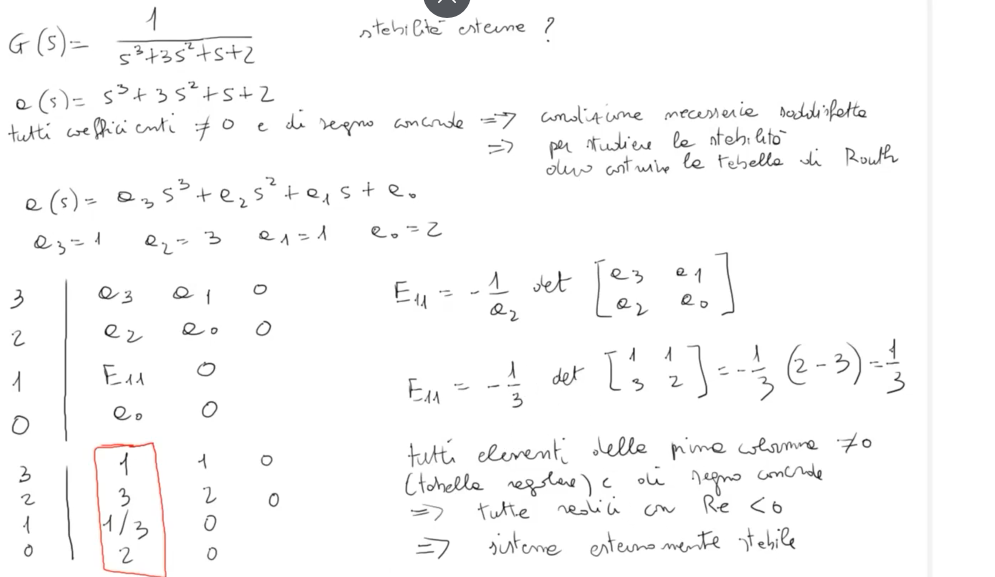 G(s) = 1 / (s³+3s²+s+2) stabilità esterna ?
a(s) = s³+3s²+s+2
tutti coefficienti ≠0 e di segno concorde => condizione necessaria soddisfatta
=> per studiare la stabilità
devo costruire la tabella di Routh
a(s) = a₃s³+a₂s²+a₁s+a₀
a₃=1 a₂=3 a₁=1 a₀=2
3 | a₃ a₁ 0
2 | a₂ a₀ 0
1 | E₁₁ 0
0 | a₀ 0
E₁₁ = -1/a₂ det [a₃ a₁
a₂ a₀]
E₁₁ = -1/3 det [1 1
3 2] = -1/3 (2-3) = 1/3
3 | 1 1 0
2 | 3 2 0
1 | 1/3 0
0 | 2 0
tutti elementi della prima colonna ≠0
(tabella regolare) e di segno concorde
=> tutte radici con Re <0
=> sistema esternamente stabile